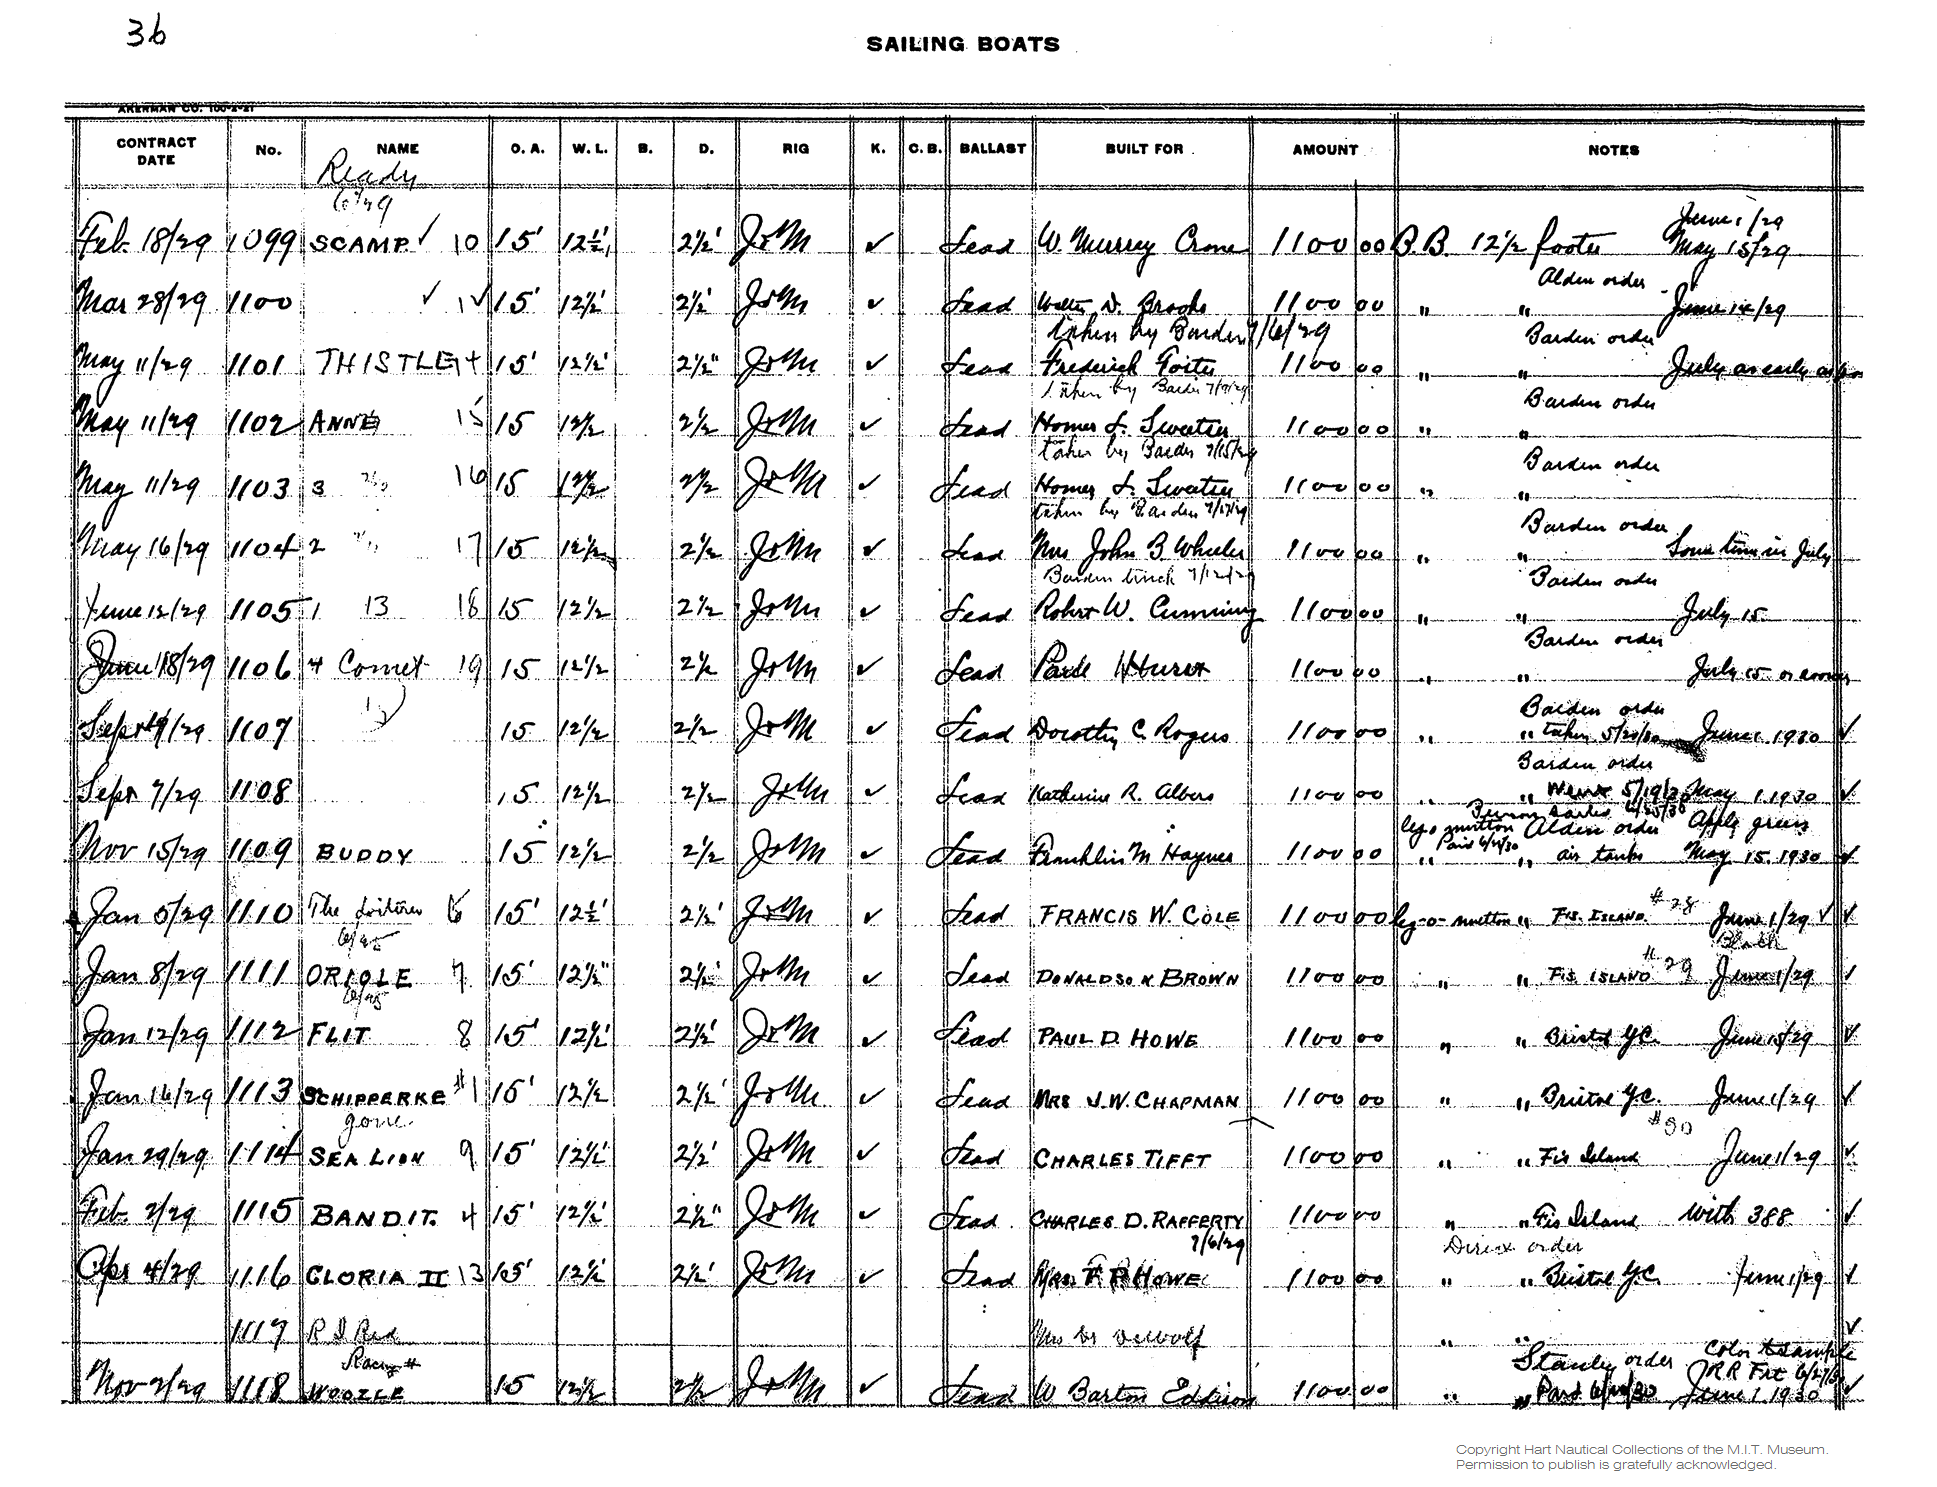 36
SAILING BOATS
AKERMAN CO. 100-2-21
CONTRACT DATE No. NAME O. A. W. L. B. D. RIG K. C. B. BALLAST BUILT FOR AMOUNT NOTES
Ready
6/29
June 1/29
Feb. 18/29 1099 SCAMP ✓ 10 15' 12½' 2½' J&M ✓ Lead W. Murray Crane 1100 00 B.B. 12½ footer May 15/29
Alden order
Mar 28/29 1100 ✓ 15' 12½' 2½' J&M ✓ Lead Walter D. Brooks 1100 00 " " June 14/29
taken by Barden 7/6/29 Barden order
May 11/29 1101 THISTLE 14 15' 12½' 2½" J&M ✓ Lead Frederick Foster 1100 00 " " July as early as
taken by Barden 7/9/29 Barden order
May 11/29 1102 ANNE 15 15 12½ 2½ J&M ✓ Lead Homer L. Sweetser 1100 00 " "
taken by Barden 7/15/29 Barden order
May 11/29 1103 3 16 15 12½ 2½ J&M ✓ Lead Homer L. Sweetser 1100 00 " "
taken by Barden 7/17/29 Barden order
May 16/29 1104 2 17 15 12½ 2½ J&M ✓ Lead Mrs John B. Wheeler 1100 00 " " Some time in July
Barden truck 7/12/29 Barden order
June 12/29 1105 1 13 18 15 12½ 2½ J&M ✓ Lead Robert W. Cumming 1100 00 " " July 15
Barden order
June 18/29 1106 4 Comet 19 15 12½ 2½ J&M ✓ Lead 1100 00 " " July 15 or sooner
12 Barden order
Sept 1107 15 12½ 2½ J&M ✓ Lead Dorothy C. Rogers 1100 00 " " taken 5/20/30 June 1 1930 ✓
Barden order
Sept 7/29 1108 15 12½ 2½ J&M ✓ Lead Katherine R. Albers 1100 00 " " Went 5/19/30 May 1. 1930 ✓
leg o mutton Alden order Apply green
Paid 6/24/30
Nov 15/29 1109 BUDDY 15 12½ 2½ J&M ✓ Lead Franklin M Haynes 1100 00 " " air tanks May 15. 1930 ✓
#28
Jan 5/29 1110 The 6 15' 12½' 2½' J&M ✓ Lead FRANCIS W. COLE 1100 00 leg-o-mutton " FIS. ISLAND June 1/29 ✓ ✓
Black
#29
Jan 8/29 1111 ORIOLE 7 15' 12½" 2½' J&M ✓ Lead DONALDSON BROWN 1100 00 " " FIS. ISLAND June 1/29 ✓
Jan 12/29 1112 FLIT 8 15' 12½' 2½' J&M ✓ Lead PAUL D. HOWE 1100 00 " " Bristol Y.C. June 15/29 ✓
Jan 16/29 1113 SCHIPPERKE #1 15' 12½ 2½' J&M ✓ Lead MRS J.W. CHAPMAN 1100 00 " " Bristol Y.C. June 1/29 ✓
gone #30
Jan 29/29 1114 SEA LION 9 15' 12½' 2½' J&M ✓ Lead CHARLES TIFFT 1100 00 " " Fis Island June 1/29 ✓
Feb. 2/29 1115 BANDIT. 4 15' 12½' 2½" J&M ✓ Lead CHARLES D. RAFFERTY 1100 00 " " Fis Island with 388 ✓
7/6/29 Direct order
Apr 4/29 1116 GLORIA II 13 15' 12½' 2½' J&M ✓ Lead MRS. F P HOWE 1100 00 " " Bristol Y.C. June 1/29 ✓
1117 R I Red Mrs Dewolf " " ✓
Racing # Stanley order Color sample
RR Frt
Nov 2/29 1118 WOOZLE 15 12½ 2½ J&M ✓ Lead W Barton Eddison 1100 00 " " Paid June 1. 1930 ✓
Copyright Hart Nautical Collections of the M.I.T. Museum.
Permission to publish is gratefully acknowledged.